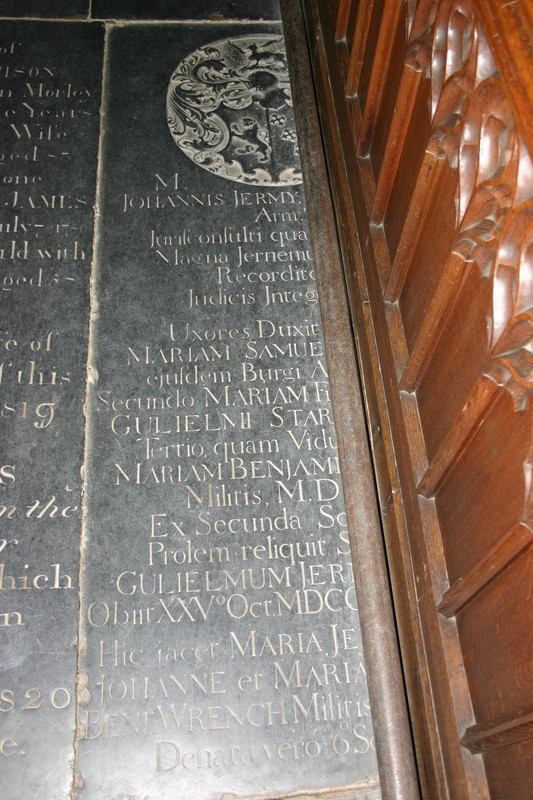 of
RISON
n Morley
e Years
Wife
one
JAMES
July
uld with
aged
fe of
f this
819
s
n the
r
which
n
1820
e.
M.
JOHANNIS JERMY
Arm.
Jurifconfulti qua
Magna Jernemu
Recordito
Judicis Integ
Uxores Duxit
MARIAM SAMUE
ejufdem Burgi A
Secundo MARIAM F
GULIELMI STAR
Tertio, quam Vidu
MARIAM BENJAMI
Militis, M.D
Ex Secunda So
Prolem reliquit S
GULIELMUM JER
Obiit XXVº Oct. MDCC
Hic jacet MARIA JE
JOHANNE et MARIA
BENJ WRENCH Militis
Denata vero 6º Se